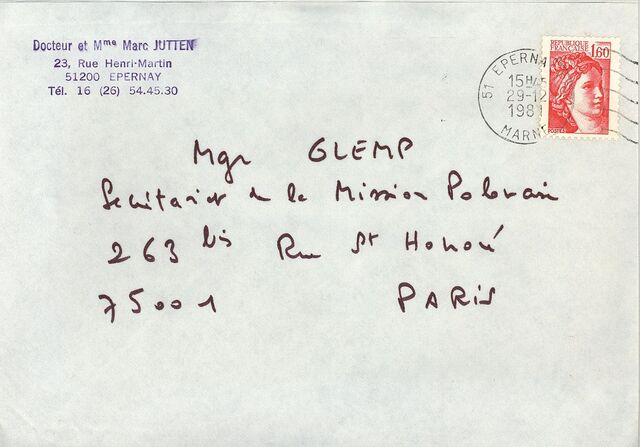 Docteur et Mme Marc JUTTEN
23, Rue Henri-Martin
51200 EPERNAY
Tél. 16 (26) 54.45.30
REPUBLIQUE
FRANÇAISE
1,60
POSTES
51 EPERNA
15H45
29-12
1981
MARNE
Mgr GLEMP
Secrétariat de la Mission Polonaise
263 bis Rue St Honoré
75001 PARIS